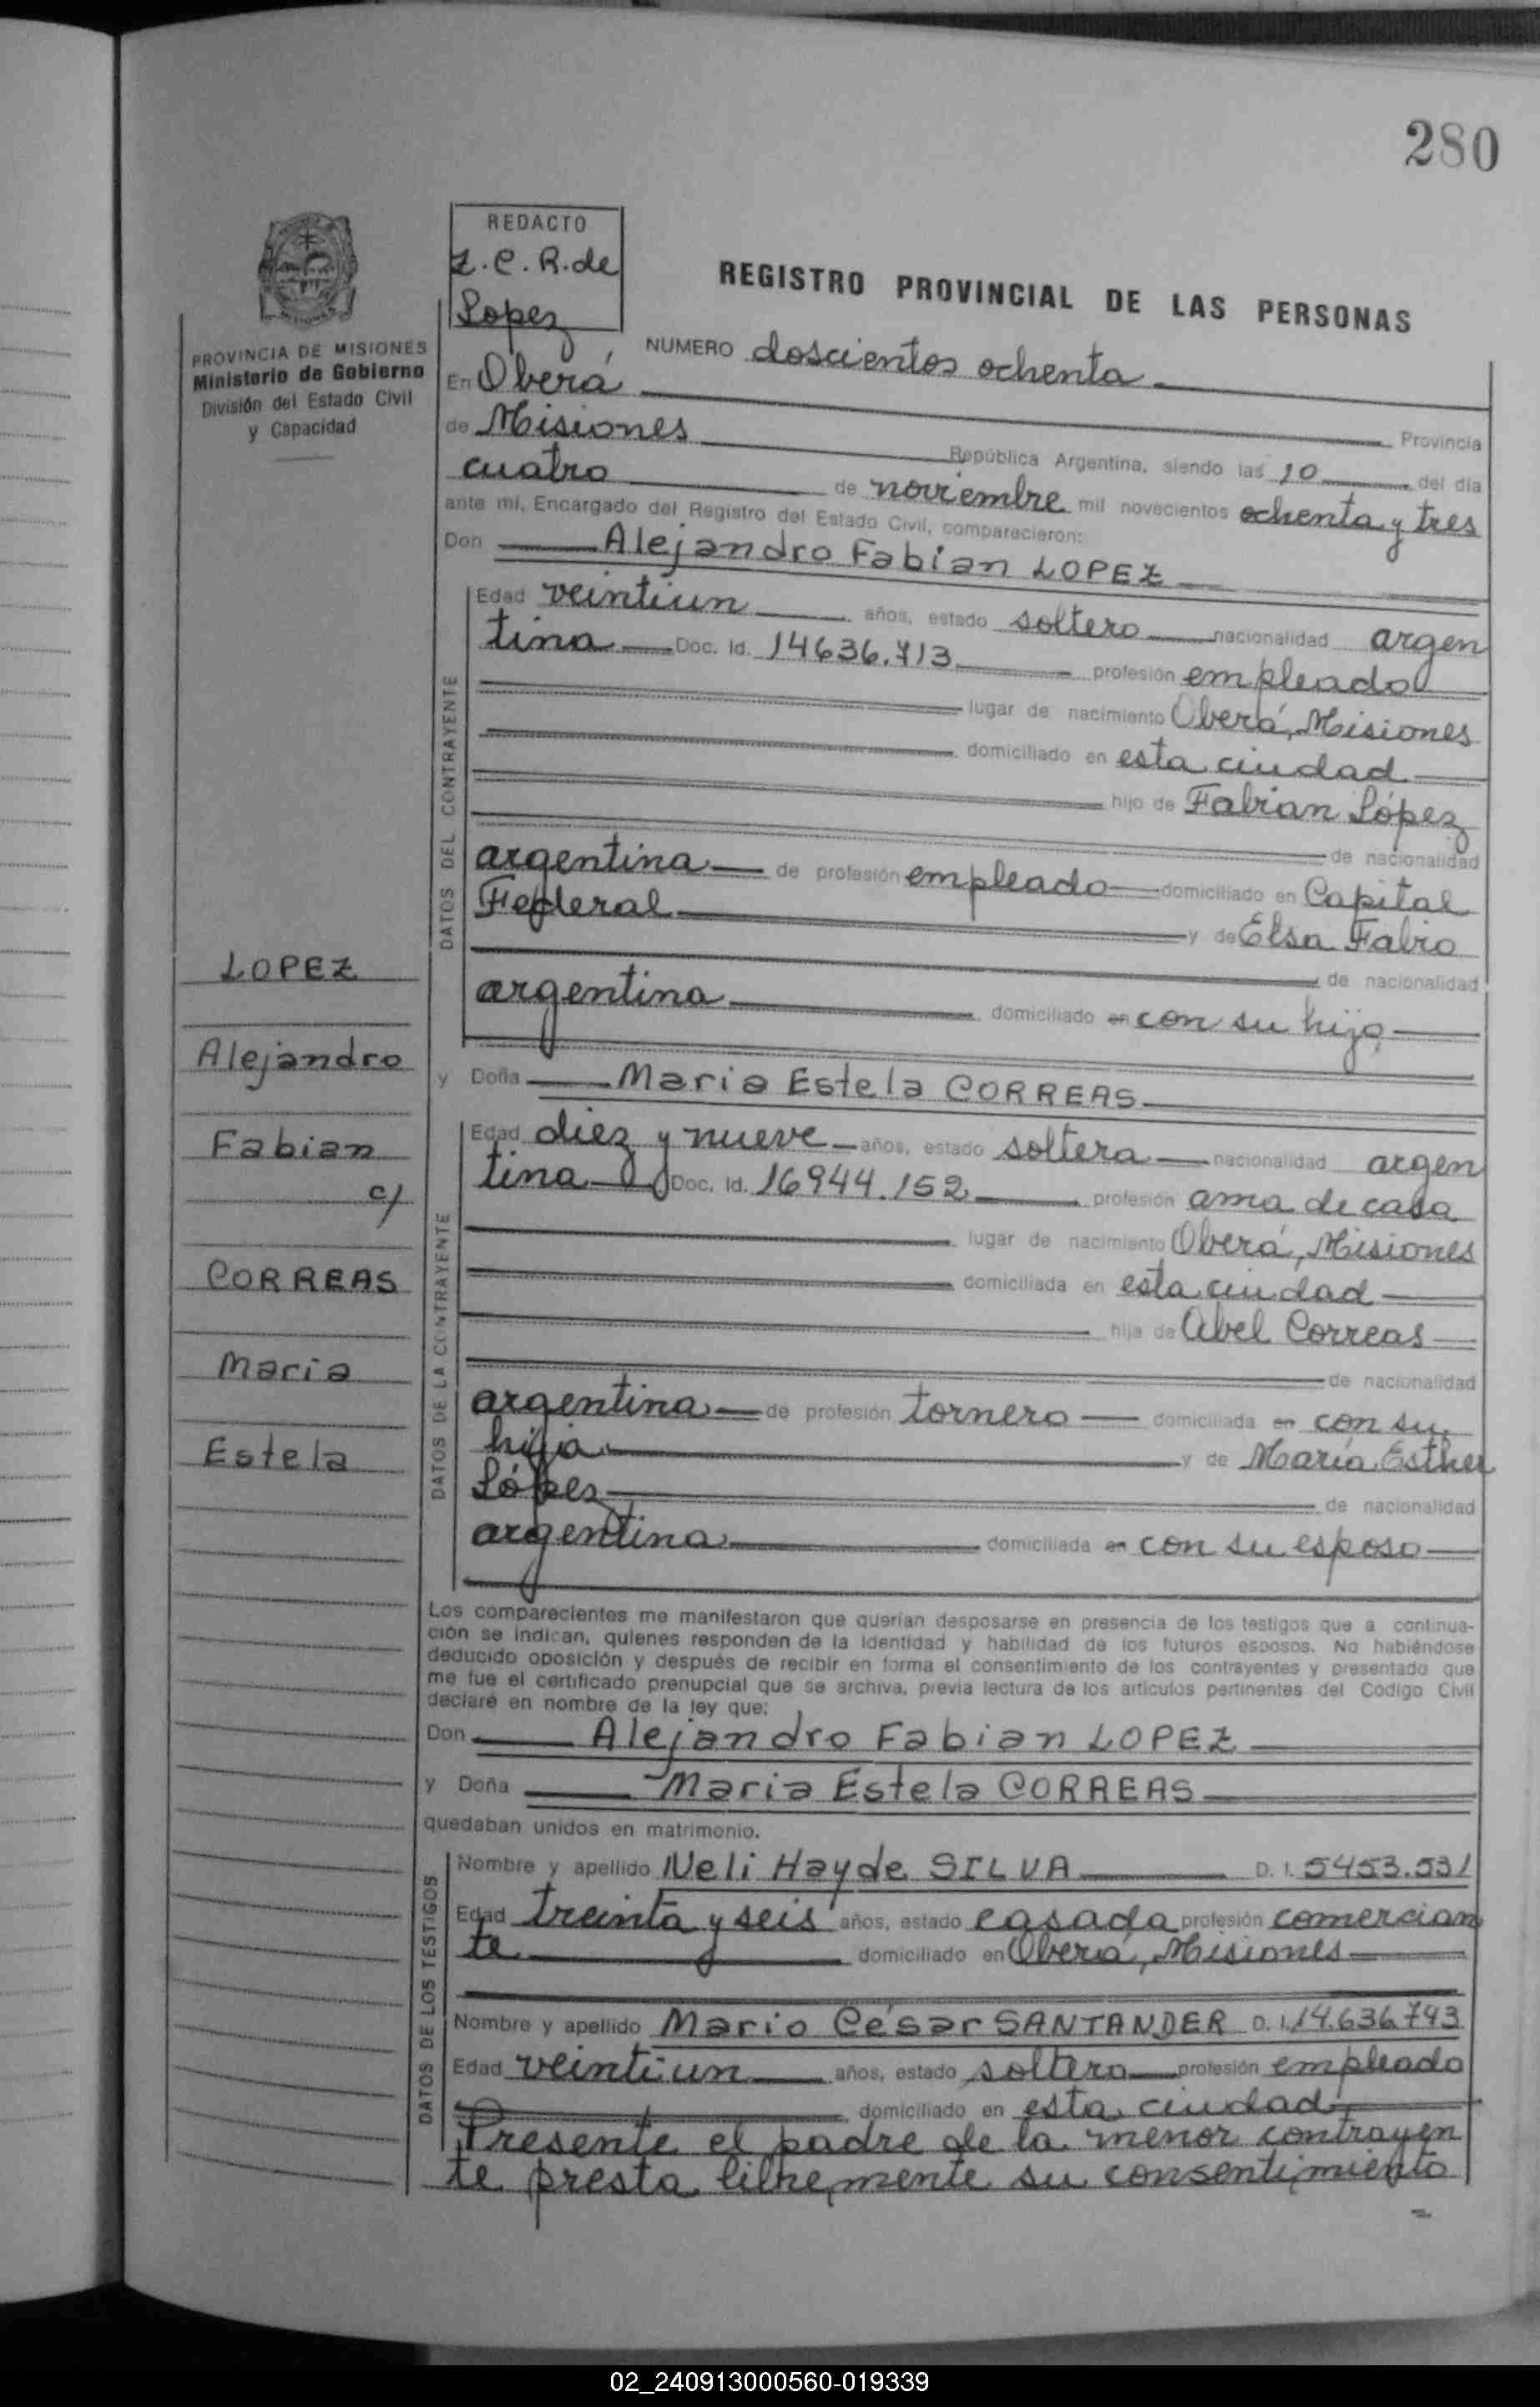 280
REDACTO
Z.C.R. de
Lopez
REGISTRO PROVINCIAL DE LAS PERSONAS
PROVINCIA DE MISIONES
Ministerio de Gobierno
División del Estado Civil
y Capacidad
NUMERO doscientos ochenta
En Oberá Provincia
de Misiones República Argentina, siendo las 10 del día
cuatro de noviembre mil novecientos ochenta y tres
ante mí, Encargado del Registro del Estado Civil, comparecieron:
Don Alejandro Fabian LOPEZ
DATOS DEL CONTRAYENTE
Edad veintiun años, estado soltero nacionalidad argen
tina Doc. Id. 14636.713 profesión empleado
lugar de nacimiento Oberá, Misiones
domiciliado en esta ciudad
hijo de Fabian López
de nacionalidad
argentina de profesión empleado domiciliado en Capital
Federal y de Elsa Fabio
de nacionalidad
argentina domiciliado en con su hijo
y Doña Maria Estela CORREAS
DATOS DE LA CONTRAYENTE
Edad diez y nueve años, estado soltera nacionalidad argen
tina Doc. Id. 16944.152 profesión ama de casa
lugar de nacimiento Oberá, Misiones
domiciliada en esta ciudad
hija de Abel Correas
de nacionalidad
argentina de profesión tornero domiciliada en con su
hija y de María Esther
López de nacionalidad
argentina domiciliada en con su esposo
LOPEZ
Alejandro
Fabian
c/
CORREAS
Maria
Estela
Los comparecientes me manifestaron que querían desposarse en presencia de los testigos que a continua-
ción se indican, quienes responden de la identidad y habilidad de los futuros esposos. No habiéndose
deducido oposición y después de recibir en forma el consentimiento de los contrayentes y presentado que
me fue el certificado prenupcial que se archiva, previa lectura de los artículos pertinentes del Código Civil
declaré en nombre de la ley que:
Don Alejandro Fabian LOPEZ
y Doña Maria Estela CORREAS
quedaban unidos en matrimonio.
DATOS DE LOS TESTIGOS
Nombre y apellido Neli Hayde SILVA D. I. 5453.531
Edad treinta y seis años, estado casada profesión comercian
te domiciliado en Oberá, Misiones
Nombre y apellido Mario César SANTANDER D. I. 14.636.743
Edad veintiun años, estado soltero profesión empleado
domiciliado en esta ciudad
Presente el padre de la menor contrayen
te presta libremente su consentimiento
02_240913000560-019339